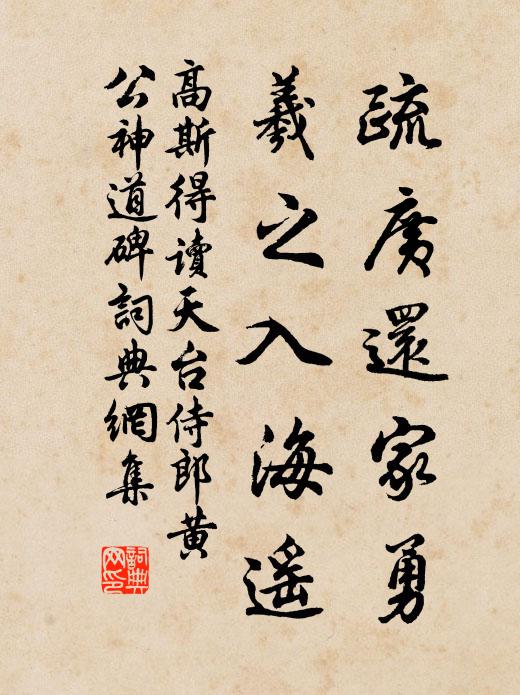 疏廣還家勇
羲之入海遥
高斯得讀天台侍郎黄
公神道碑詞典網集
詞典网印